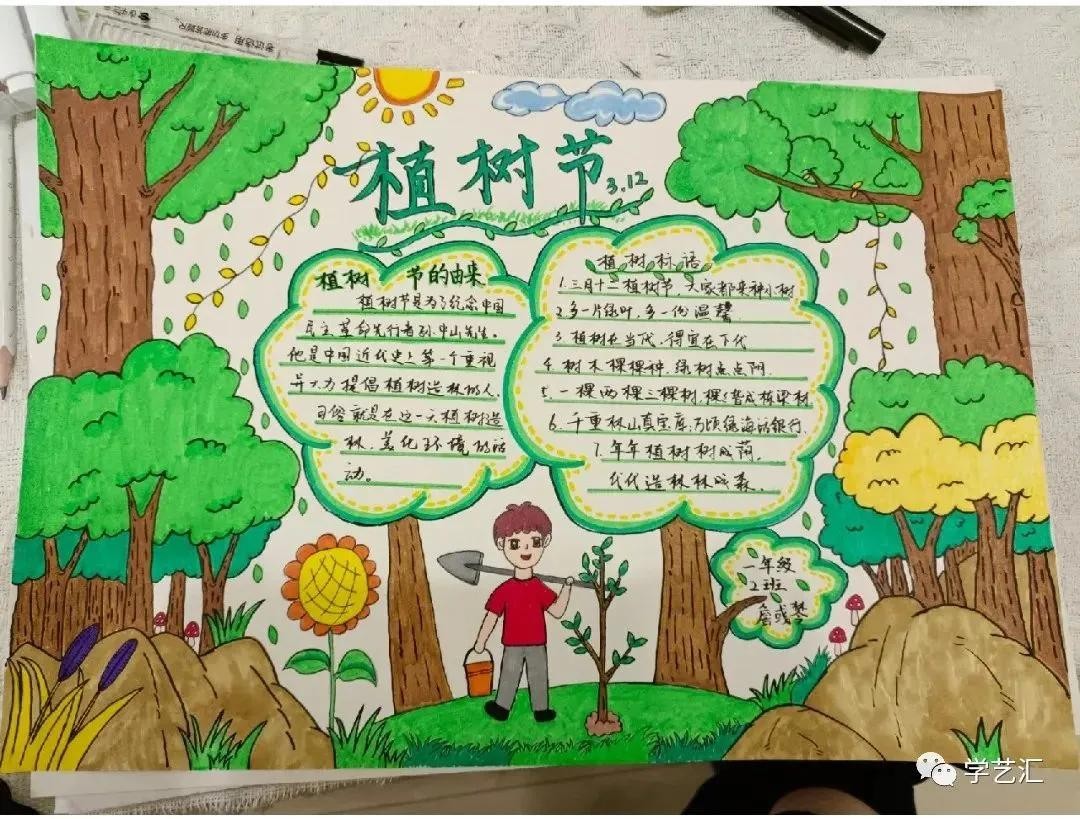 考试适用 多功能套尺
植树节
3.12
植树 节的由来
植树节是为了纪念中国
民主革命先行者孙中山先生。
他是中国近代史上第一个重视
并大力提倡植树造林的人.
习俗就是在这一天植树造
林,美化环境的活
动。
植树标语
1.三月十二植树节,大家都来种小树
2.多一片绿叶,多一份温馨
3.植树在当代,得宜在下代
4.树木棵棵种,绿树点点阴.
5.一棵两棵三棵树,棵棵皆成栋梁材
6.千重林山真宝库,万顷绿海活银行.
7.年年植树树成荫,
代代造林林成森.
一年级
2班
詹彧梦
学艺汇